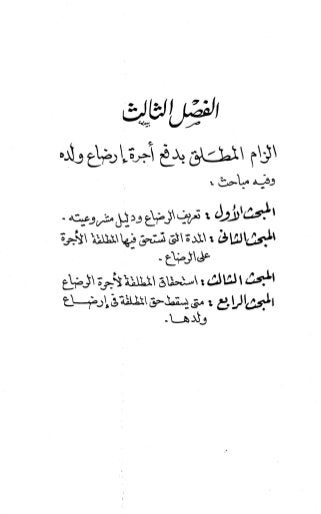 الفصل الثالث
الزام المطلق بدفع أجرة إرضاع ولده
وفيه مباحث :
المبحث الأول : تعريف الرضاع ودليل مشروعيته .
المبحث الثانى : المدة التى تستحق فيها المطلقة الأجرة
على الرضاع .
المبحث الثالث : استحقاق المطلقة لأجرة الرضاع
المبحث الرابع : متى يسقط حق المطلقة فى إرضاع
ولدها .